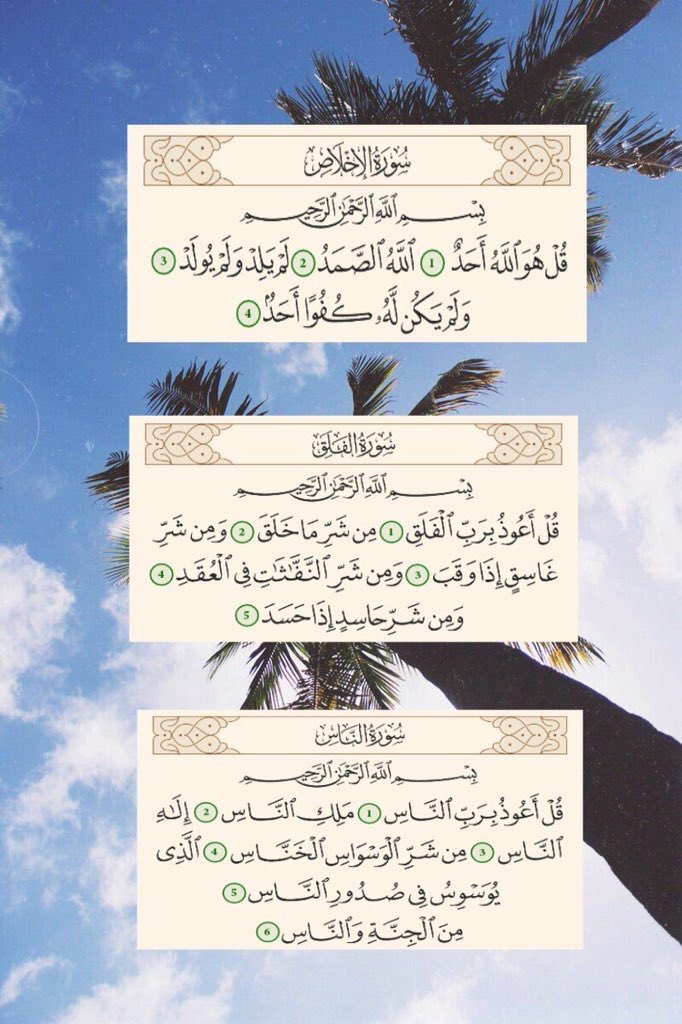 سُورَةُ الإِخْلَاصِ
بِسْمِ ٱللَّهِ ٱلرَّحْمَٰنِ ٱلرَّحِيمِ
قُلْ هُوَ ٱللَّهُ أَحَدٌ 1 ٱللَّهُ ٱلصَّمَدُ 2 لَمْ يَلِدْ وَلَمْ يُولَدْ 3
وَلَمْ يَكُن لَّهُۥ كُفُوًا أَحَدٌۢ 4
سُورَةُ الفَلَقِ
بِسْمِ ٱللَّهِ ٱلرَّحْمَٰنِ ٱلرَّحِيمِ
قُلْ أَعُوذُ بِرَبِّ ٱلْفَلَقِ 1 مِن شَرِّ مَا خَلَقَ 2 وَمِن شَرِّ
غَاسِقٍ إِذَا وَقَبَ 3 وَمِن شَرِّ ٱلنَّفَّٰثَٰتِ فِى ٱلْعُقَدِ 4
وَمِن شَرِّ حَاسِدٍ إِذَا حَسَدَ 5
سُورَةُ النَّاسِ
بِسْمِ ٱللَّهِ ٱلرَّحْمَٰنِ ٱلرَّحِيمِ
قُلْ أَعُوذُ بِرَبِّ ٱلنَّاسِ 1 مَلِكِ ٱلنَّاسِ 2 إِلَٰهِ
ٱلنَّاسِ 3 مِن شَرِّ ٱلْوَسْوَاسِ ٱلْخَنَّاسِ 4 ٱلَّذِى
يُوَسْوِسُ فِى صُدُورِ ٱلنَّاسِ 5
مِنَ ٱلْجِنَّةِ وَٱلنَّاسِ 6